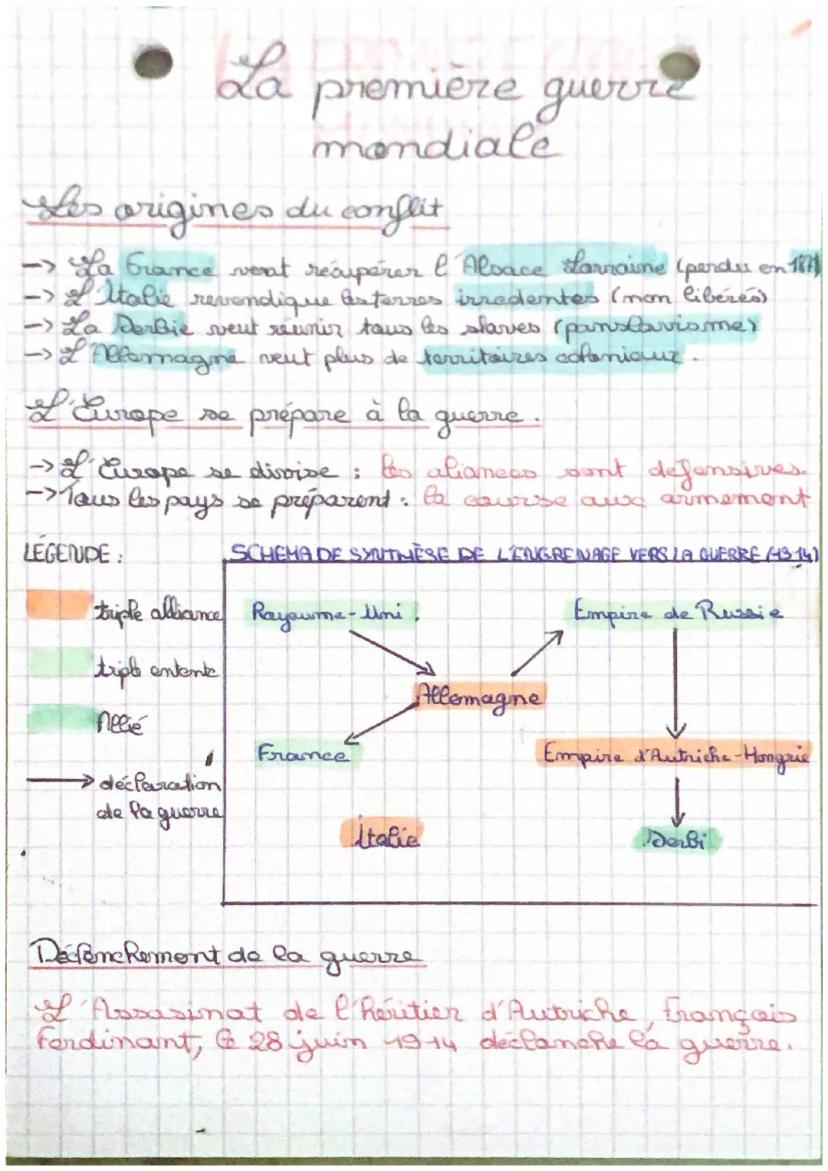 La première guerre
mondiale
Les origines du conflit
-> La France veut récupérer l'Alsace Lorraine (perdu en 1871)
-> L'Italie revendique les terres irredentes (non libérés)
-> La Serbie veut réunir tous les slaves (panslavisme)
-> L'Allemagne veut plus de territoires coloniaux.
L'Europe se prépare à la guerre.
-> L'Europe se divise : les aliances sont defensives.
-> Tous les pays se préparent : la course aux armement
LÉGENDE :
triple alliance
triple entente
Allié
déclaration
de la guerre
SCHEMA DE SYNTHÈSE DE L'ENGRENAGE VERS LA GUERRE (1914)
Royaume-Uni
Empire de Russie
Allemagne
France
Empire d'Autriche-Hongrie
Italie
Serbi
Déclenchement de la guerre
L'Assasinat de l'héritier d'Autriche, François
Ferdinant, le 28 juin 1914 déclanche la guerre.